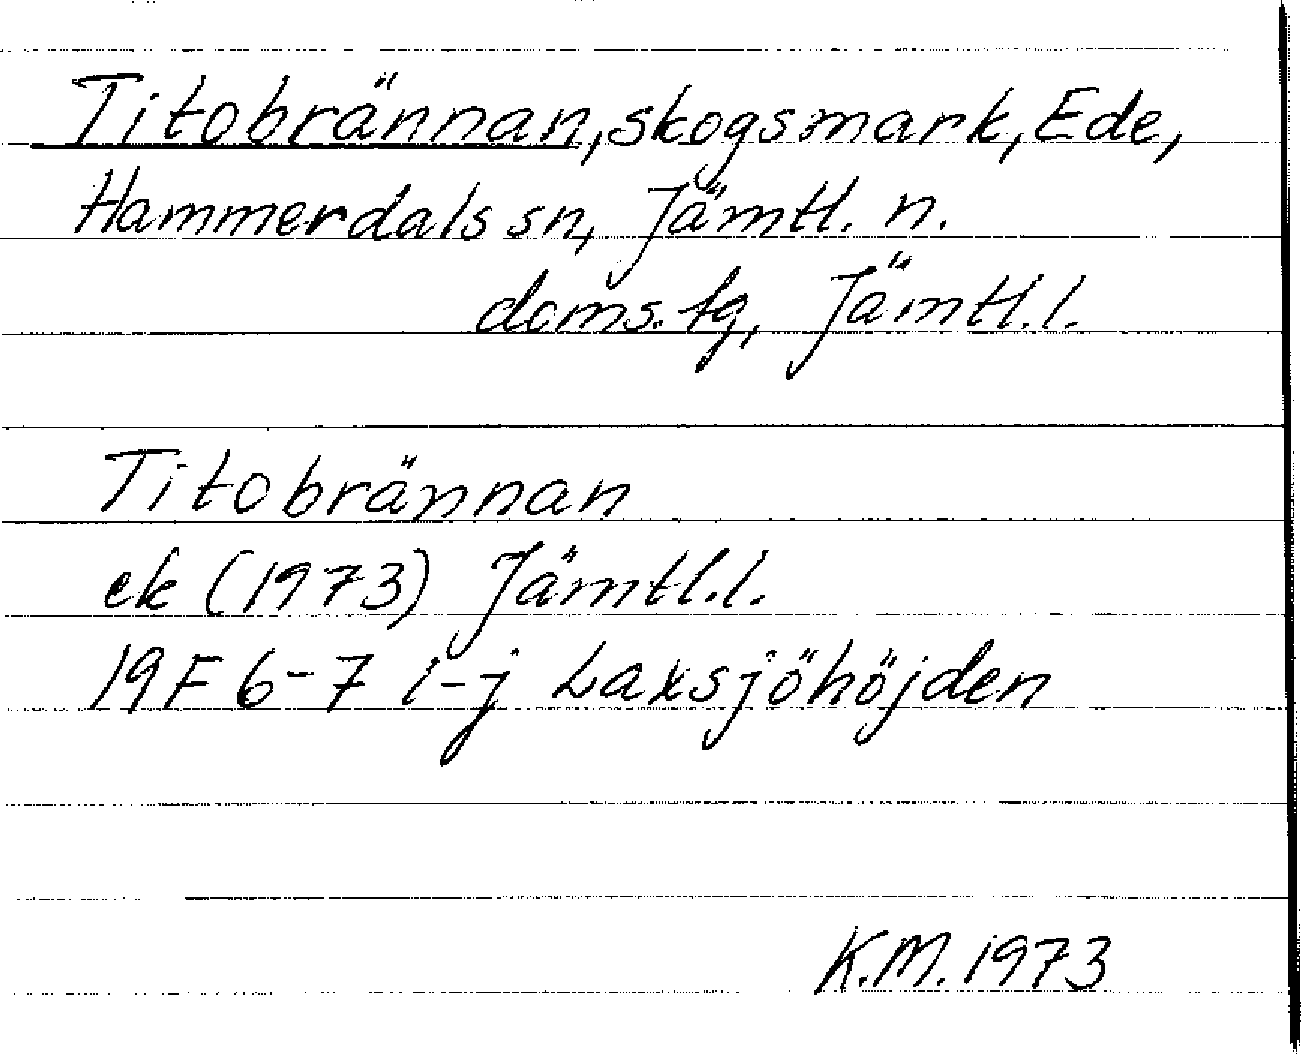 Titobrännan, skogsmark, Ede,
Hammerdals sn, Jämtl. n.
doms. tg, Jämtl. l.
Titobrännan
ek (1973) Jämtl. l.
19F 6-7 i-j Laxsjöhöjden
K.M. 1973